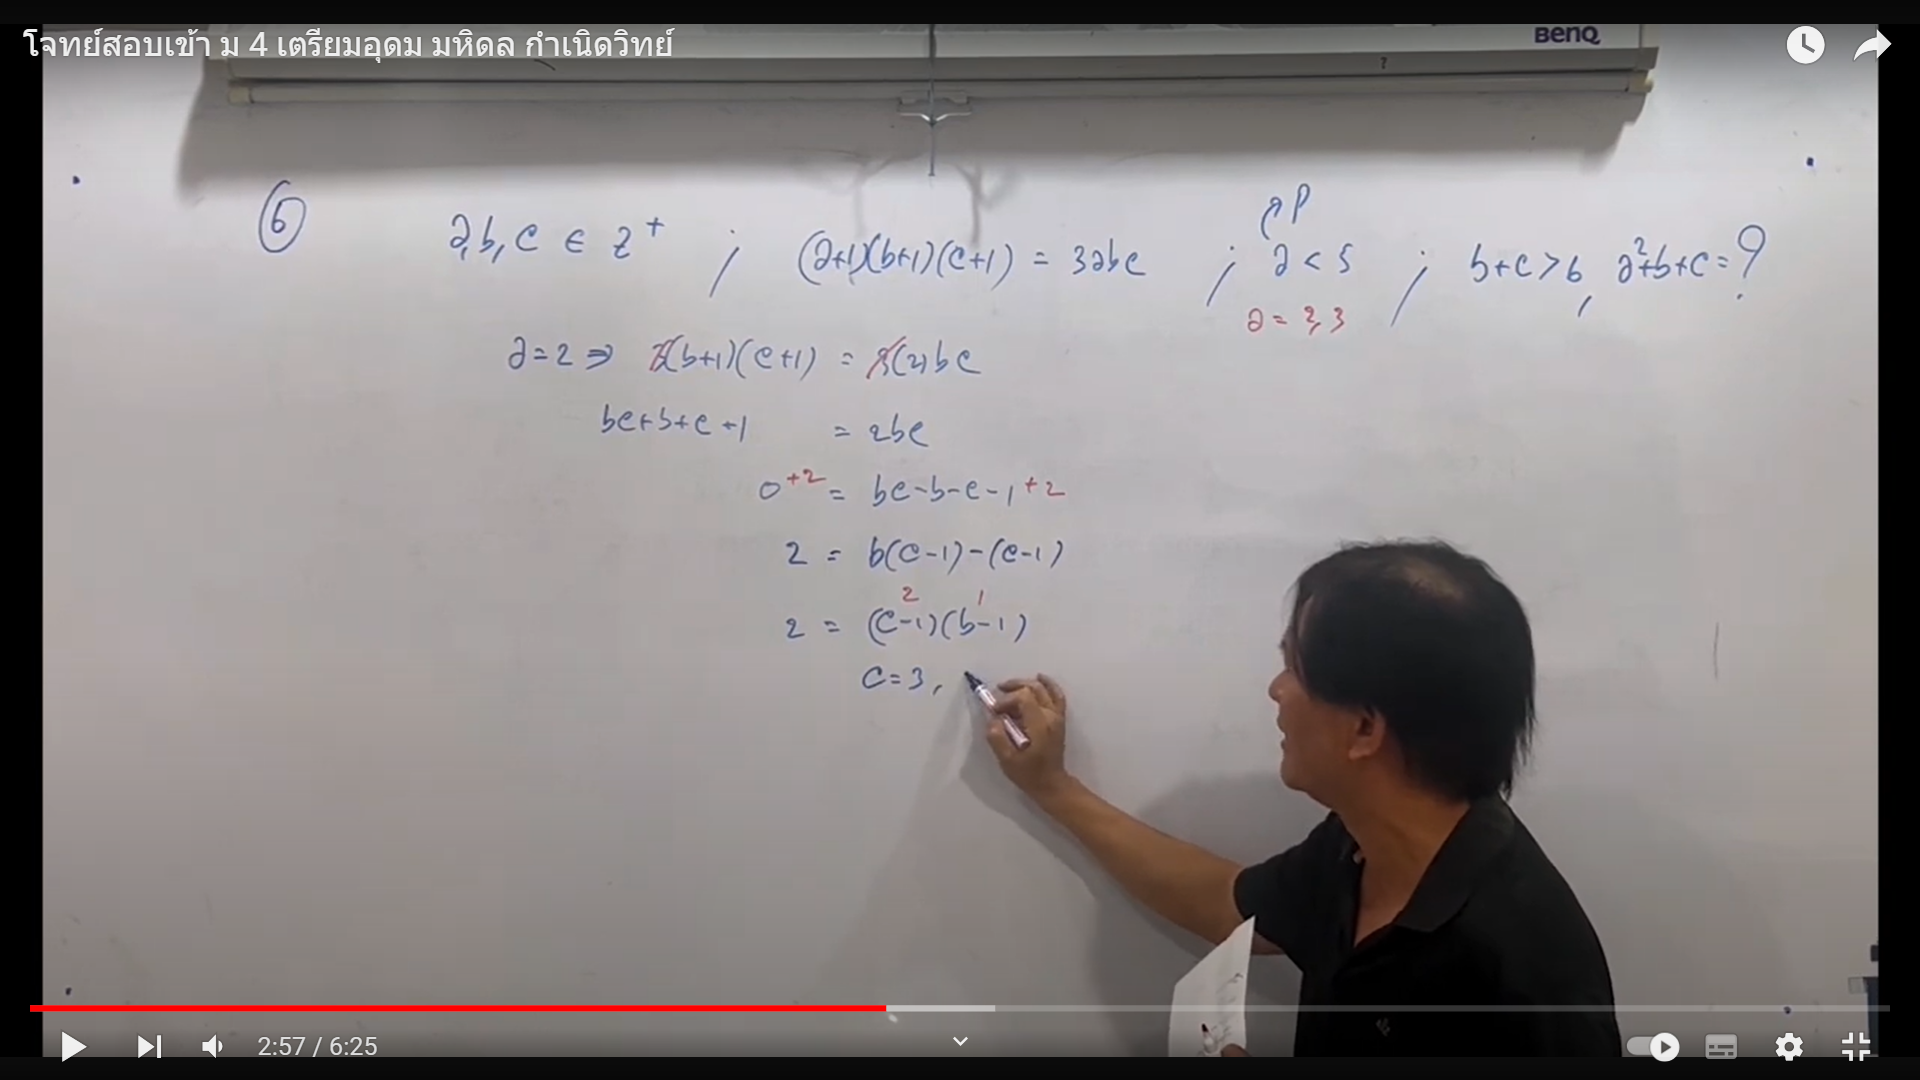 โจทย์สอบเข้า ม 4 เตรียมอุดม มหิดล กำเนิดวิทย์
BenQ
6 a, b, c ∈ Z⁺ ; (a+1)(b+1)(c+1) = 3abc ; a < 5 ; b+c > 6, a²+b+c = ?
P
a = 2, 3
a = 2 ⇒ 3(b+1)(c+1) = 3(2)bc
bc+b+c+1 = 2bc
0 +2 = bc-b-c-1 +2
2 = b(c-1)-(c-1)
2 1
2 = (c-1)(b-1)
c=3,
2:57 / 6:25